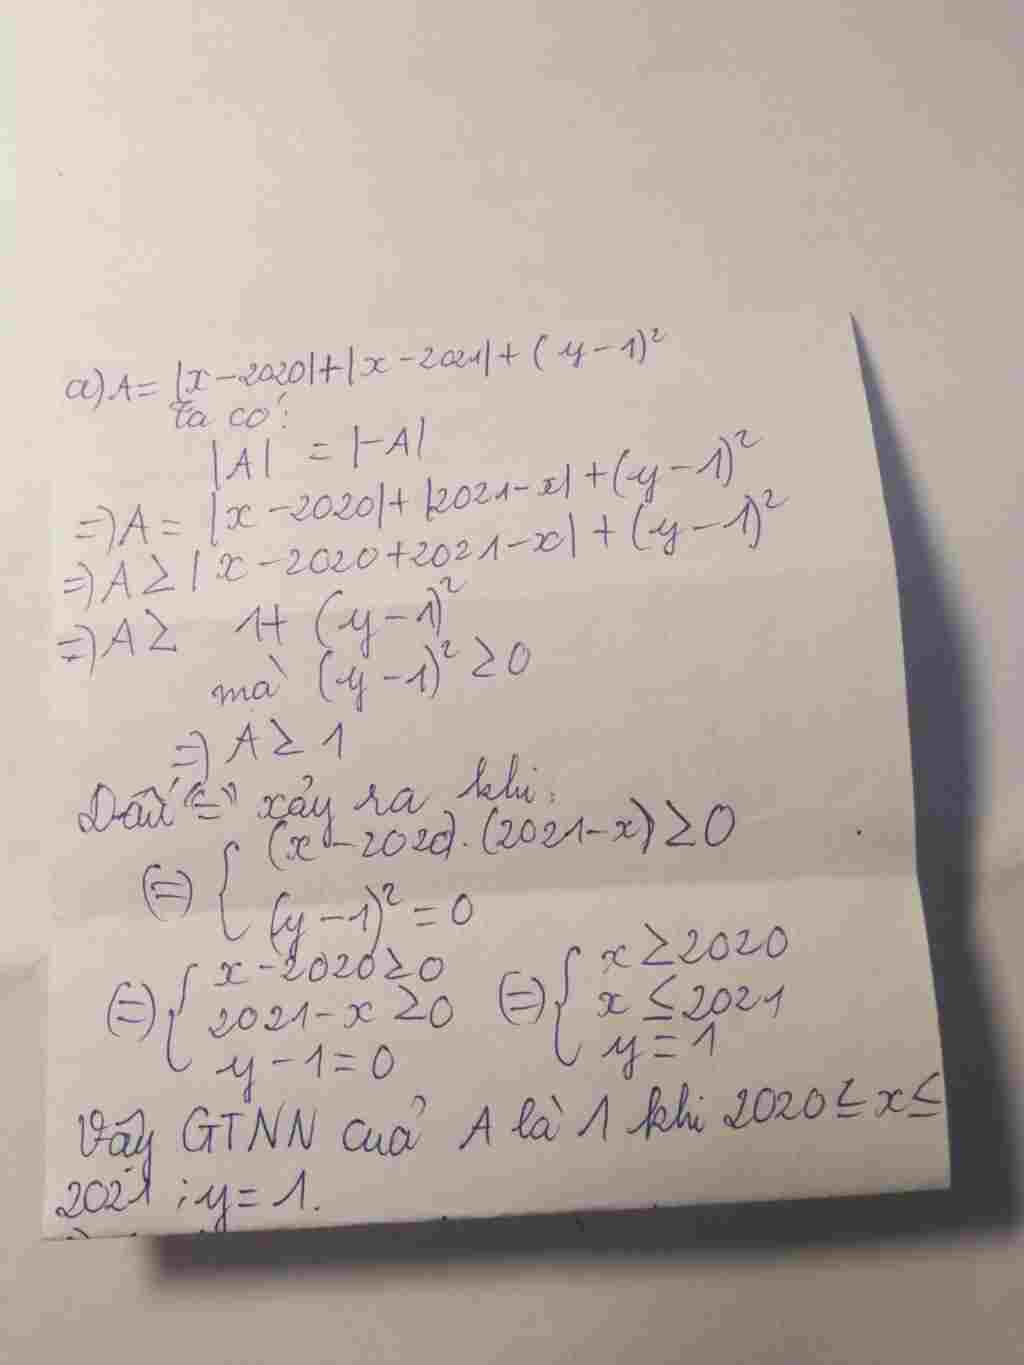 a) A = |x - 2020| + |x - 2021| + (y - 1)²
Ta có:
|A| = |-A|
=> A = |x - 2020| + |2021 - x| + (y - 1)²
=> A ≥ |x - 2020 + 2021 - x| + (y - 1)²
=> A ≥ 1 + (y - 1)²
mà (y - 1)² ≥ 0
=> A ≥ 1
Dấu "=" xảy ra khi:
(=) { (x - 2020).(2021 - x) ≥ 0
(y - 1)² = 0
(=) { x - 2020 ≥ 0 (=) { x ≥ 2020
2021 - x ≥ 0 x ≤ 2021
y - 1 = 0 y = 1
Vậy GTNN của A là 1 khi 2020 ≤ x ≤
2021 ; y = 1.